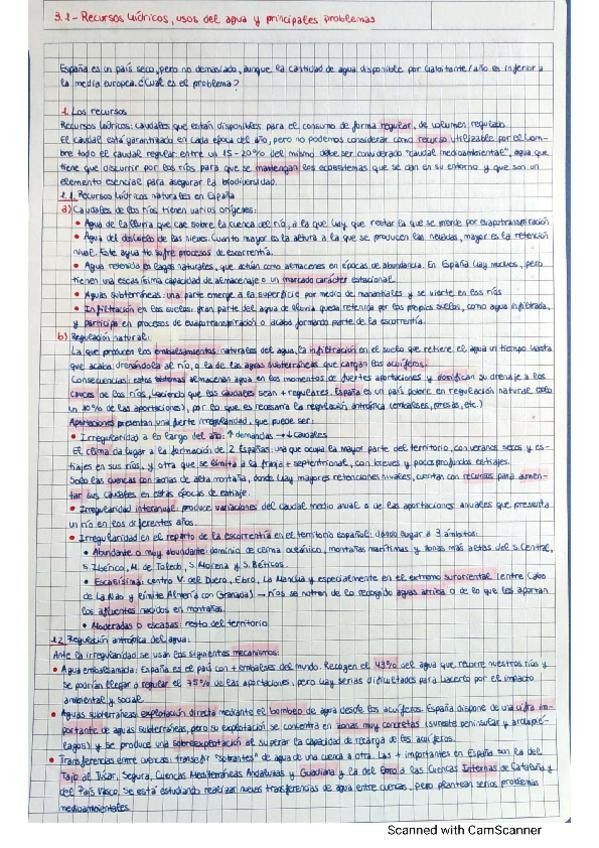 3.1- Recursos hídricos, usos del agua y principales problemas
España es un país seco, pero no demasiado, aunque la cantidad de agua disponible por habitante/año es inferior a
la media europea. ¿Cuál es el problema?
1. Los recursos
Recursos hídricos: caudales que están disponibles para el consumo de forma regular, de volumen regulado
El caudal está garantizado en cada época del año, pero no podemos considerar como recurso utilizable por el hom-
bre todo el caudal regular: entre un 15-20% del mismo debe ser considerado "caudal medioambiental", agua que
tiene que discurrir por los ríos para que se mantengan los ecosistemas que se dan en su entorno y que son un
elemento esencial para asegurar la biodiversidad.
1.1. Recursos hídricos naturales en España
a) Caudales de los ríos tienen varios orígenes:
• Agua de la lluvia que cae sobre la cuenca del río, a la que hay que restar la que se pierde por evapotranspiración
• Agua del deshielo de las nieves. Cuanto mayor es la altura a la que se producen las nevadas, mayor es la retención
nival. Este agua no sufre procesos de escorrentía.
• Agua retenida en lagos naturales, que actúan como almacenes en épocas de abundancia. En España hay muchos, pero
tienen una escasísima capacidad de almacenaje o un marcado carácter estacional.
• Aguas subterráneas: una parte emerge a la superficie por medio de manantiales y se vierte en los ríos
• Infiltración en los suelos: gran parte del agua de lluvia queda retenida por los propios suelos, como agua infiltrada,
y participa en procesos de evapotranspiración o acaba formando parte de la escorrentía.
b) Regulación natural:
La que producen los embalsamientos naturales del agua, la infiltración en el suelo que retiene el agua un tiempo hasta
que acaba drenándola al río, o la de las aguas subterráneas que cargan los acuíferos.
Consecuencias: estos sistemas almacenan agua en los momentos de fuertes aportaciones y dosifican su drenaje a los
cauces de los ríos, haciendo que los caudales sean + regulares. España es un país pobre en regulación natural (solo
un 10% de las aportaciones), por lo que es necesaria la regulación antrópica (embalses, presas, etc.)
Aportaciones presentan una fuerte irregularidad, que puede ser:
• Irregularidad a lo largo del año: ↑ demandas → ↓ caudales
El clima da lugar a la formación de 2 Españas: una que ocupa la mayor parte del territorio, con veranos secos y es-
tiajes en sus ríos, y otra que se limita a la franja + septentrional, con breves y poco profundos estiajes.
Solo las cuencas con zonas de alta montaña, donde hay mayores retenciones nivales, cuentan con recursos para aumen-
tar sus caudales en estas épocas de estiaje.
• Irregularidad interanual: produce variaciones del caudal medio anual o de las aportaciones anuales que presenta
un río en los diferentes años.
• Irregularidad en el reparto de la escorrentía en el territorio español: dando lugar a 3 ámbitos:
• Abundante o muy abundante: dominio de clima oceánico, montañas marítimas y zonas más altas del S. Central,
S. Ibérico, M. de Toledo, S. Morena y S. Béticos.
• Escasísima: centro V. del Duero, Ebro, La Mancha y especialmente en el extremo suroriental (entre Cabo
de La Nao y límite Almería con Granada) → ríos se nutren de lo recogido aguas arriba o de lo que les aportan
los afluentes nacidos en montañas.
• Moderadas o escasas: resto del territorio
1.2. Regulación antrópica del agua:
Ante la irregularidad se usan los siguientes mecanismos:
• Agua embalsamada: España es el país con + embalses del mundo. Recogen el 43% del agua que recorre nuestros ríos y
se podrían llegar a regular el 75% de las aportaciones, pero hay serias dificultades para hacerlo por el impacto
ambiental y social.
• Aguas subterráneas: explotación directa mediante el bombeo de agua desde los acuíferos. España dispone de una cifra im-
portante de aguas subterráneas, pero su explotación se concentra en zonas muy concretas (sureste peninsular y archipié-
lagos) y se produce una sobreexplotación al superar la capacidad de recarga de los acuíferos.
• Transferencias entre cuencas: trasvasar "sobrantes" de agua de una cuenca a otra. Las + importantes en España son la del
Tajo al Júcar, Segura, Cuencas Mediterráneas Andaluzas y Guadiana y la del Ebro a las Cuencas Internas de Cataluña y
del País Vasco. Se está estudiando realizar nuevas transferencias de agua entre cuencas, pero plantean serios problemas
medioambientales.
Scanned with CamScanner